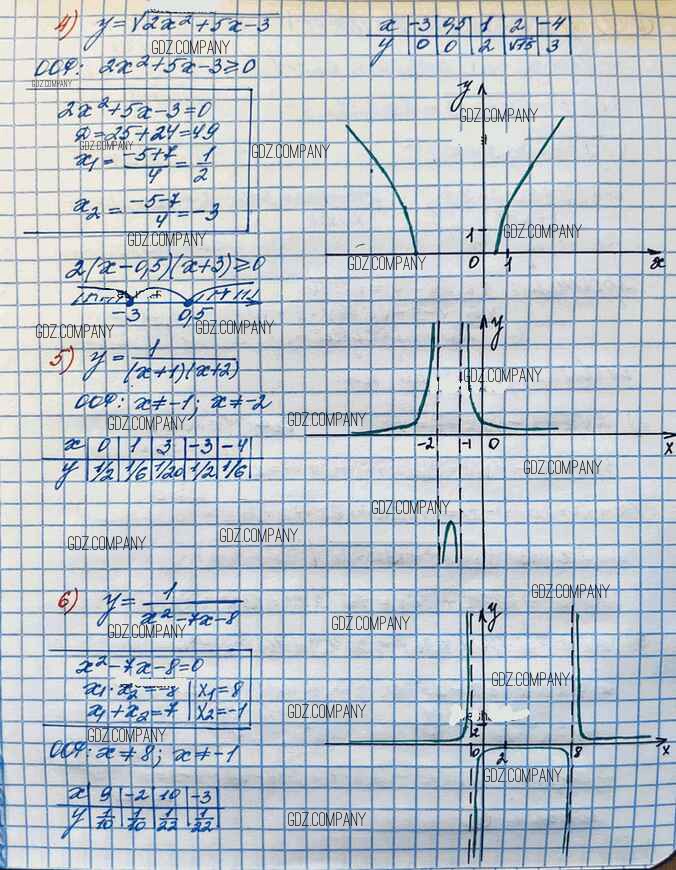 4) y=√2x²+5x-3
x | -3 | 0,5 | 1 | 2 | -4
y | 0 | 0 | 2 | √15 | 3
GDZ.COMPANY
ООФ: 2x²+5x-3≥0
GDZ.COMPANY
2x²+5x-3=0
D=25+24=49
GDZ.COMPANY
x₁=(-5+7)/4=1/2
x₂=(-5-7)/4=-3
GDZ.COMPANY
2(x-0,5)(x+3)≥0
-3 0,5
GDZ.COMPANY
GDZ.COMPANY
y
GDZ.COMPANY
GDZ.COMPANY
1
GDZ.COMPANY
0 1 x
GDZ.COMPANY
5) y=1/((x+1)(x+2))
ООФ: x≠-1; x≠-2
GDZ.COMPANY
x | 0 | 1 | 3 | -3 | -4
y | 1/2 | 1/6 | 1/20 | 1/2 | 1/6
y
GDZ.COMPANY
GDZ.COMPANY
-2 -1 0 x
GDZ.COMPANY
GDZ.COMPANY
GDZ.COMPANY
GDZ.COMPANY
6) y=1/(x²-7x-8)
GDZ.COMPANY
x²-7x-8=0
x₁·x₂=-8 | x₁=8
x₁+x₂=7 | x₂=-1
GDZ.COMPANY
ООФ: x≠8; x≠-1
x | 9 | -2 | 10 | -3
y | 1/10 | 1/10 | 1/22 | 1/22
GDZ.COMPANY
y
GDZ.COMPANY
GDZ.COMPANY
GDZ.COMPANY
2
0 2 8 x
GDZ.COMPANY
GDZ.COMPANY